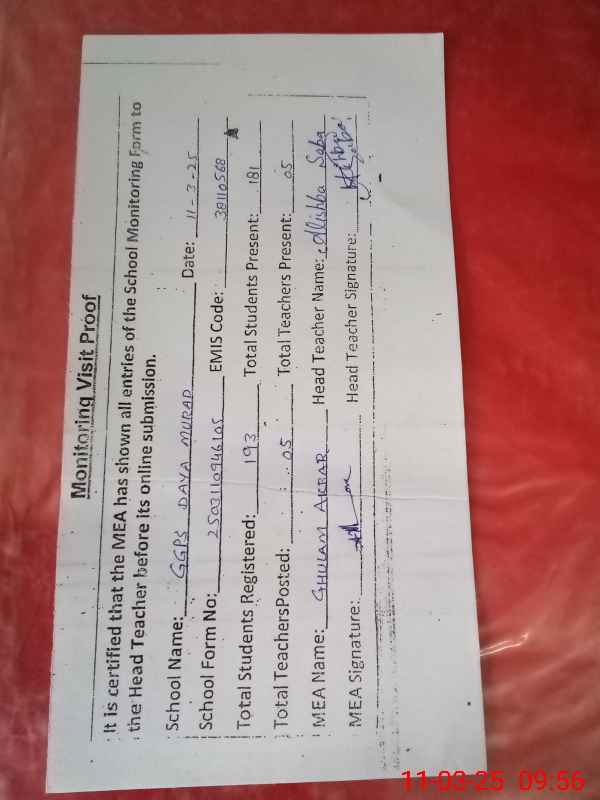 Monitoring Visit Proof
It is certified that the MEA has shown all entries of the School Monitoring Form to
the Head Teacher before its online submission.
School Name: GGPS DAYA MURAD Date: 11-3-25
School Form No: 2503110946105 EMIS Code: 38110568
Total Students Registered: 193 Total Students Present: 181
Total TeachersPosted: 05 Total Teachers Present: 05
MEA Name: GHULAM AKBAR Head Teacher Name: Alishba Saba
MEA Signature: Head Teacher Signature:
11-03-25 09:56